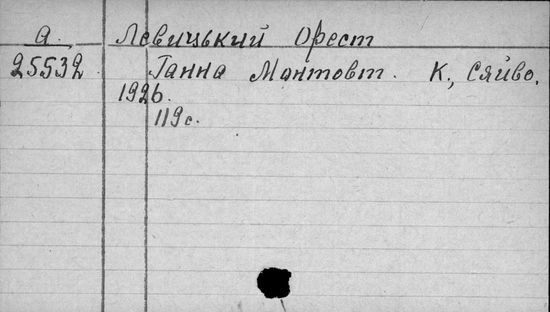 А. Левицький Орест
25532 Ганна Монтовт. К., Сяйво.
1926.
119 с.